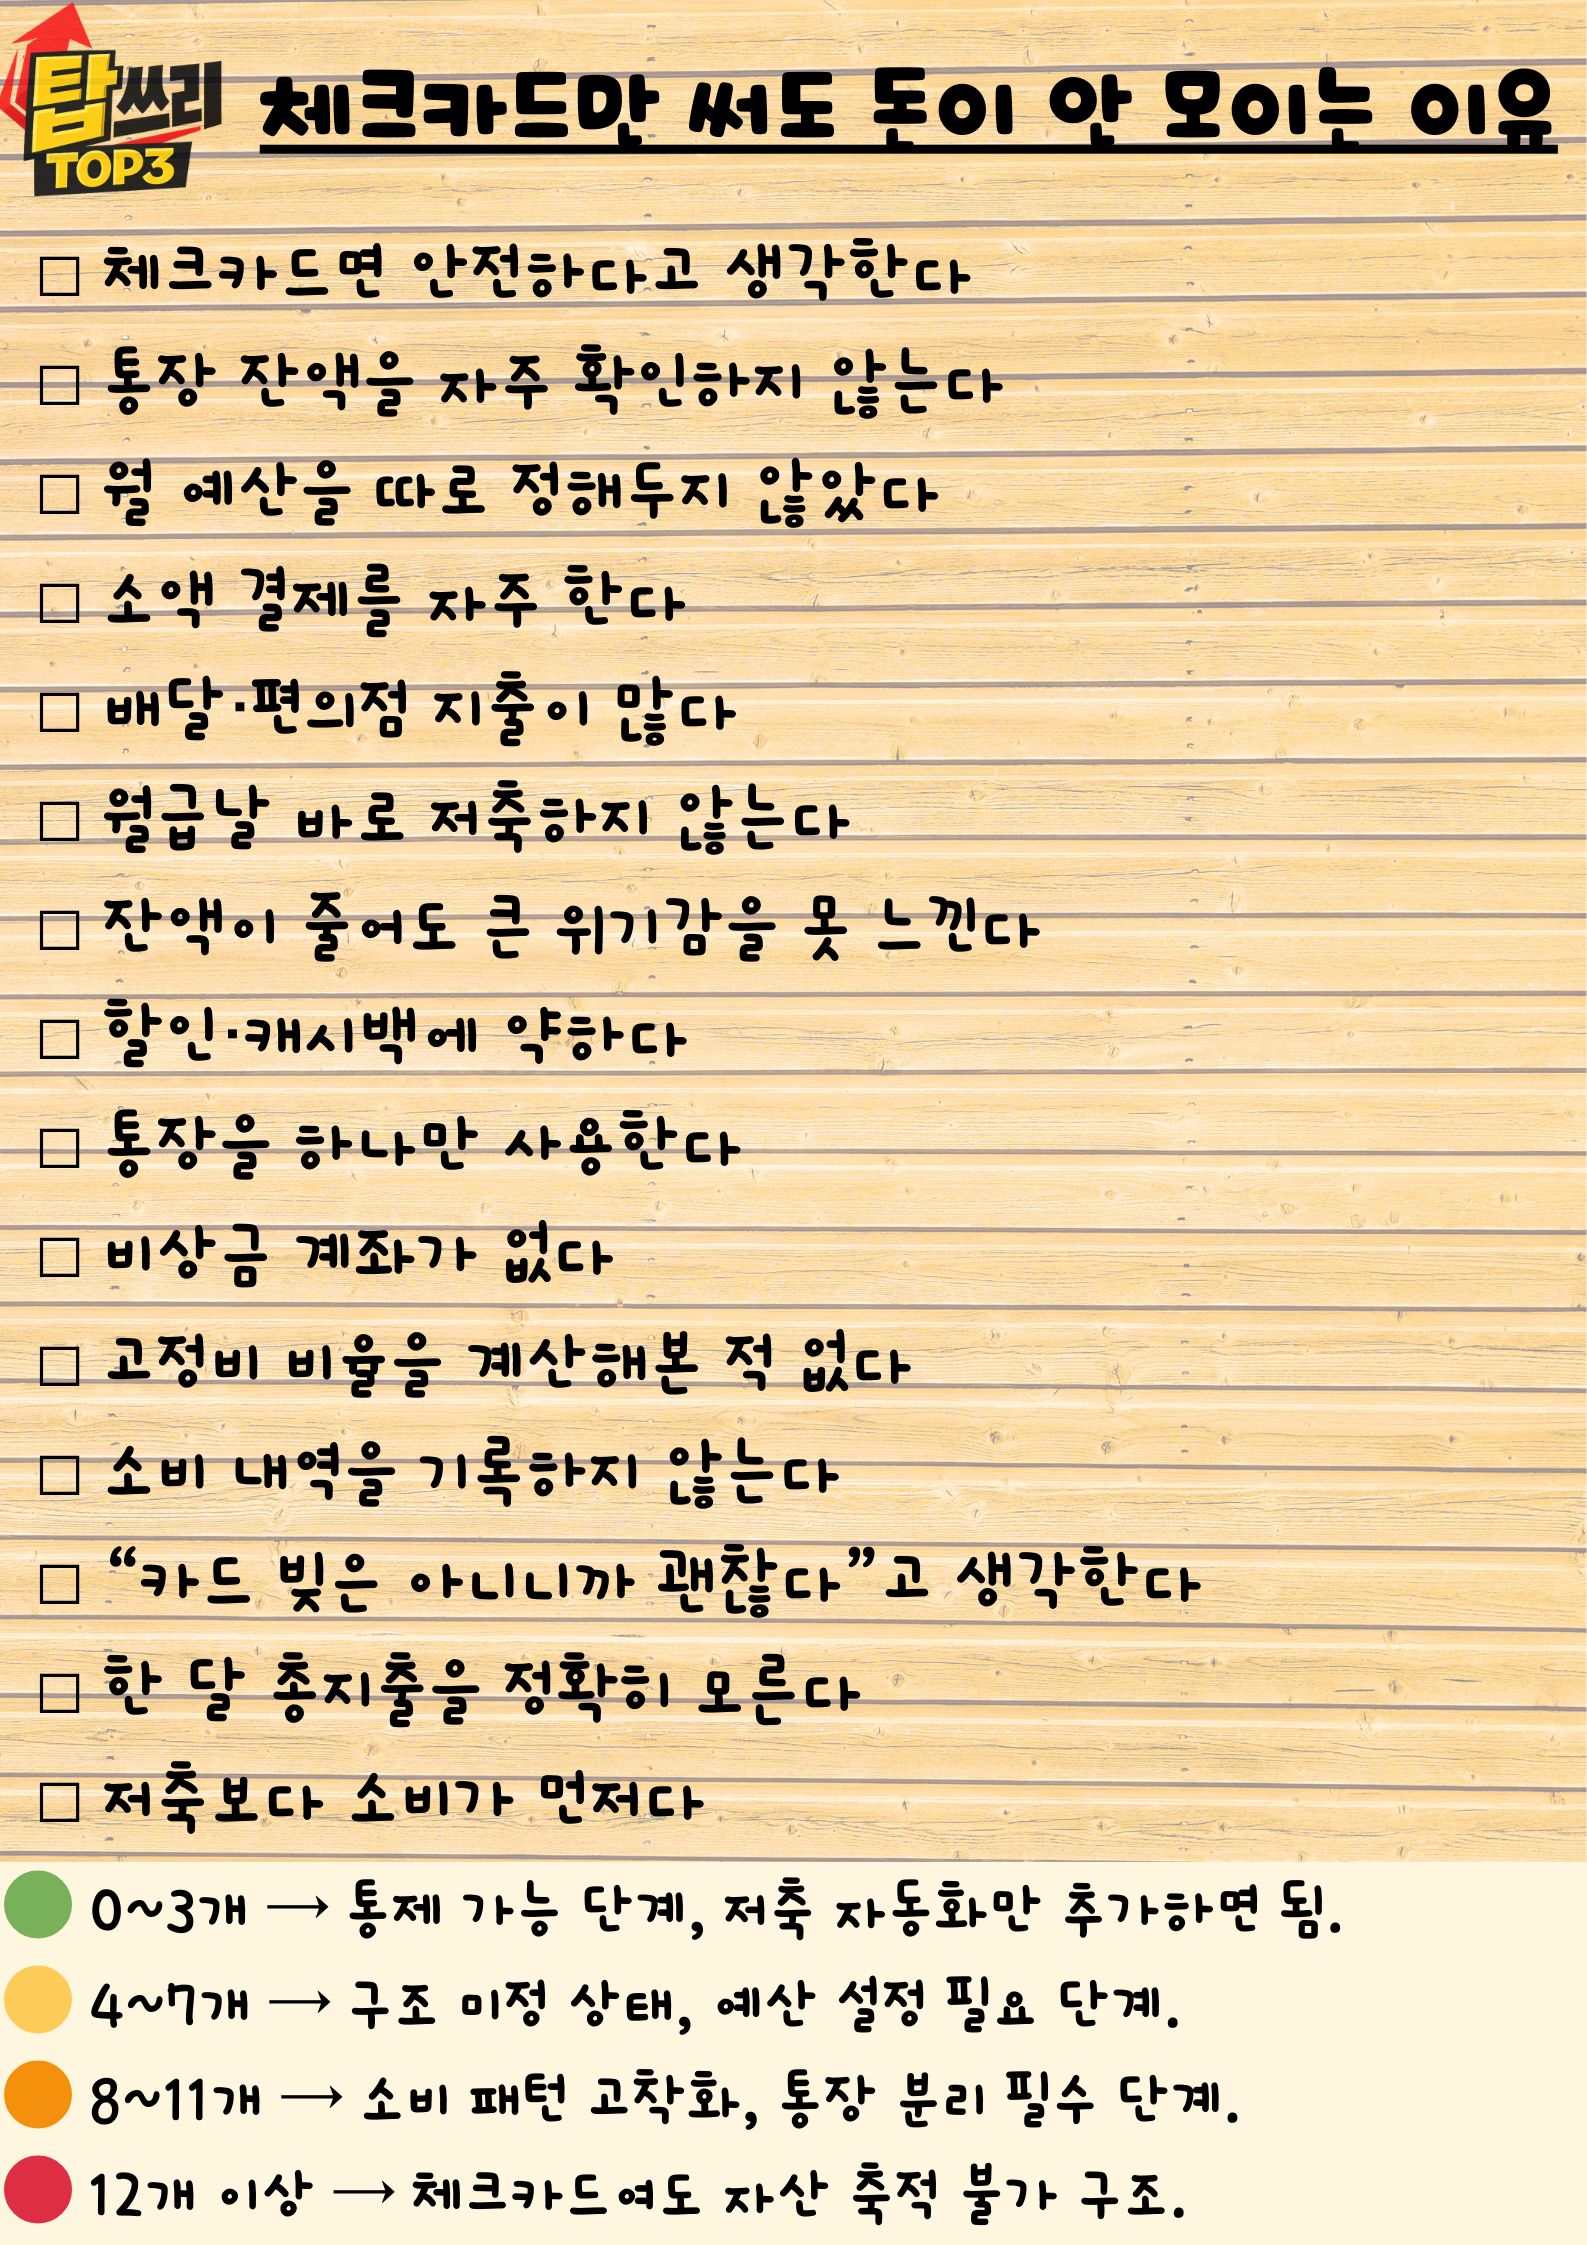 탑쓰리
TOP3
체크카드만 써도 돈이 안 모이는 이유
□ 체크카드면 안전하다고 생각한다
□ 통장 잔액을 자주 확인하지 않는다
□ 월 예산을 따로 정해두지 않았다
□ 소액 결제를 자주 한다
□ 배달·편의점 지출이 많다
□ 월급날 바로 저축하지 않는다
□ 잔액이 줄어도 큰 위기감을 못 느낀다
□ 할인·캐시백에 약하다
□ 통장을 하나만 사용한다
□ 비상금 계좌가 없다
□ 고정비 비율을 계산해본 적 없다
□ 소비 내역을 기록하지 않는다
□ “카드 빚은 아니니까 괜찮다”고 생각한다
□ 한 달 총지출을 정확히 모른다
□ 저축보다 소비가 먼저다
0~3개 → 통제 가능 단계, 저축 자동화만 추가하면 됨.
4~7개 → 구조 미정 상태, 예산 설정 필요 단계.
8~11개 → 소비 패턴 고착화, 통장 분리 필수 단계.
12개 이상 → 체크카드여도 자산 축적 불가 구조.